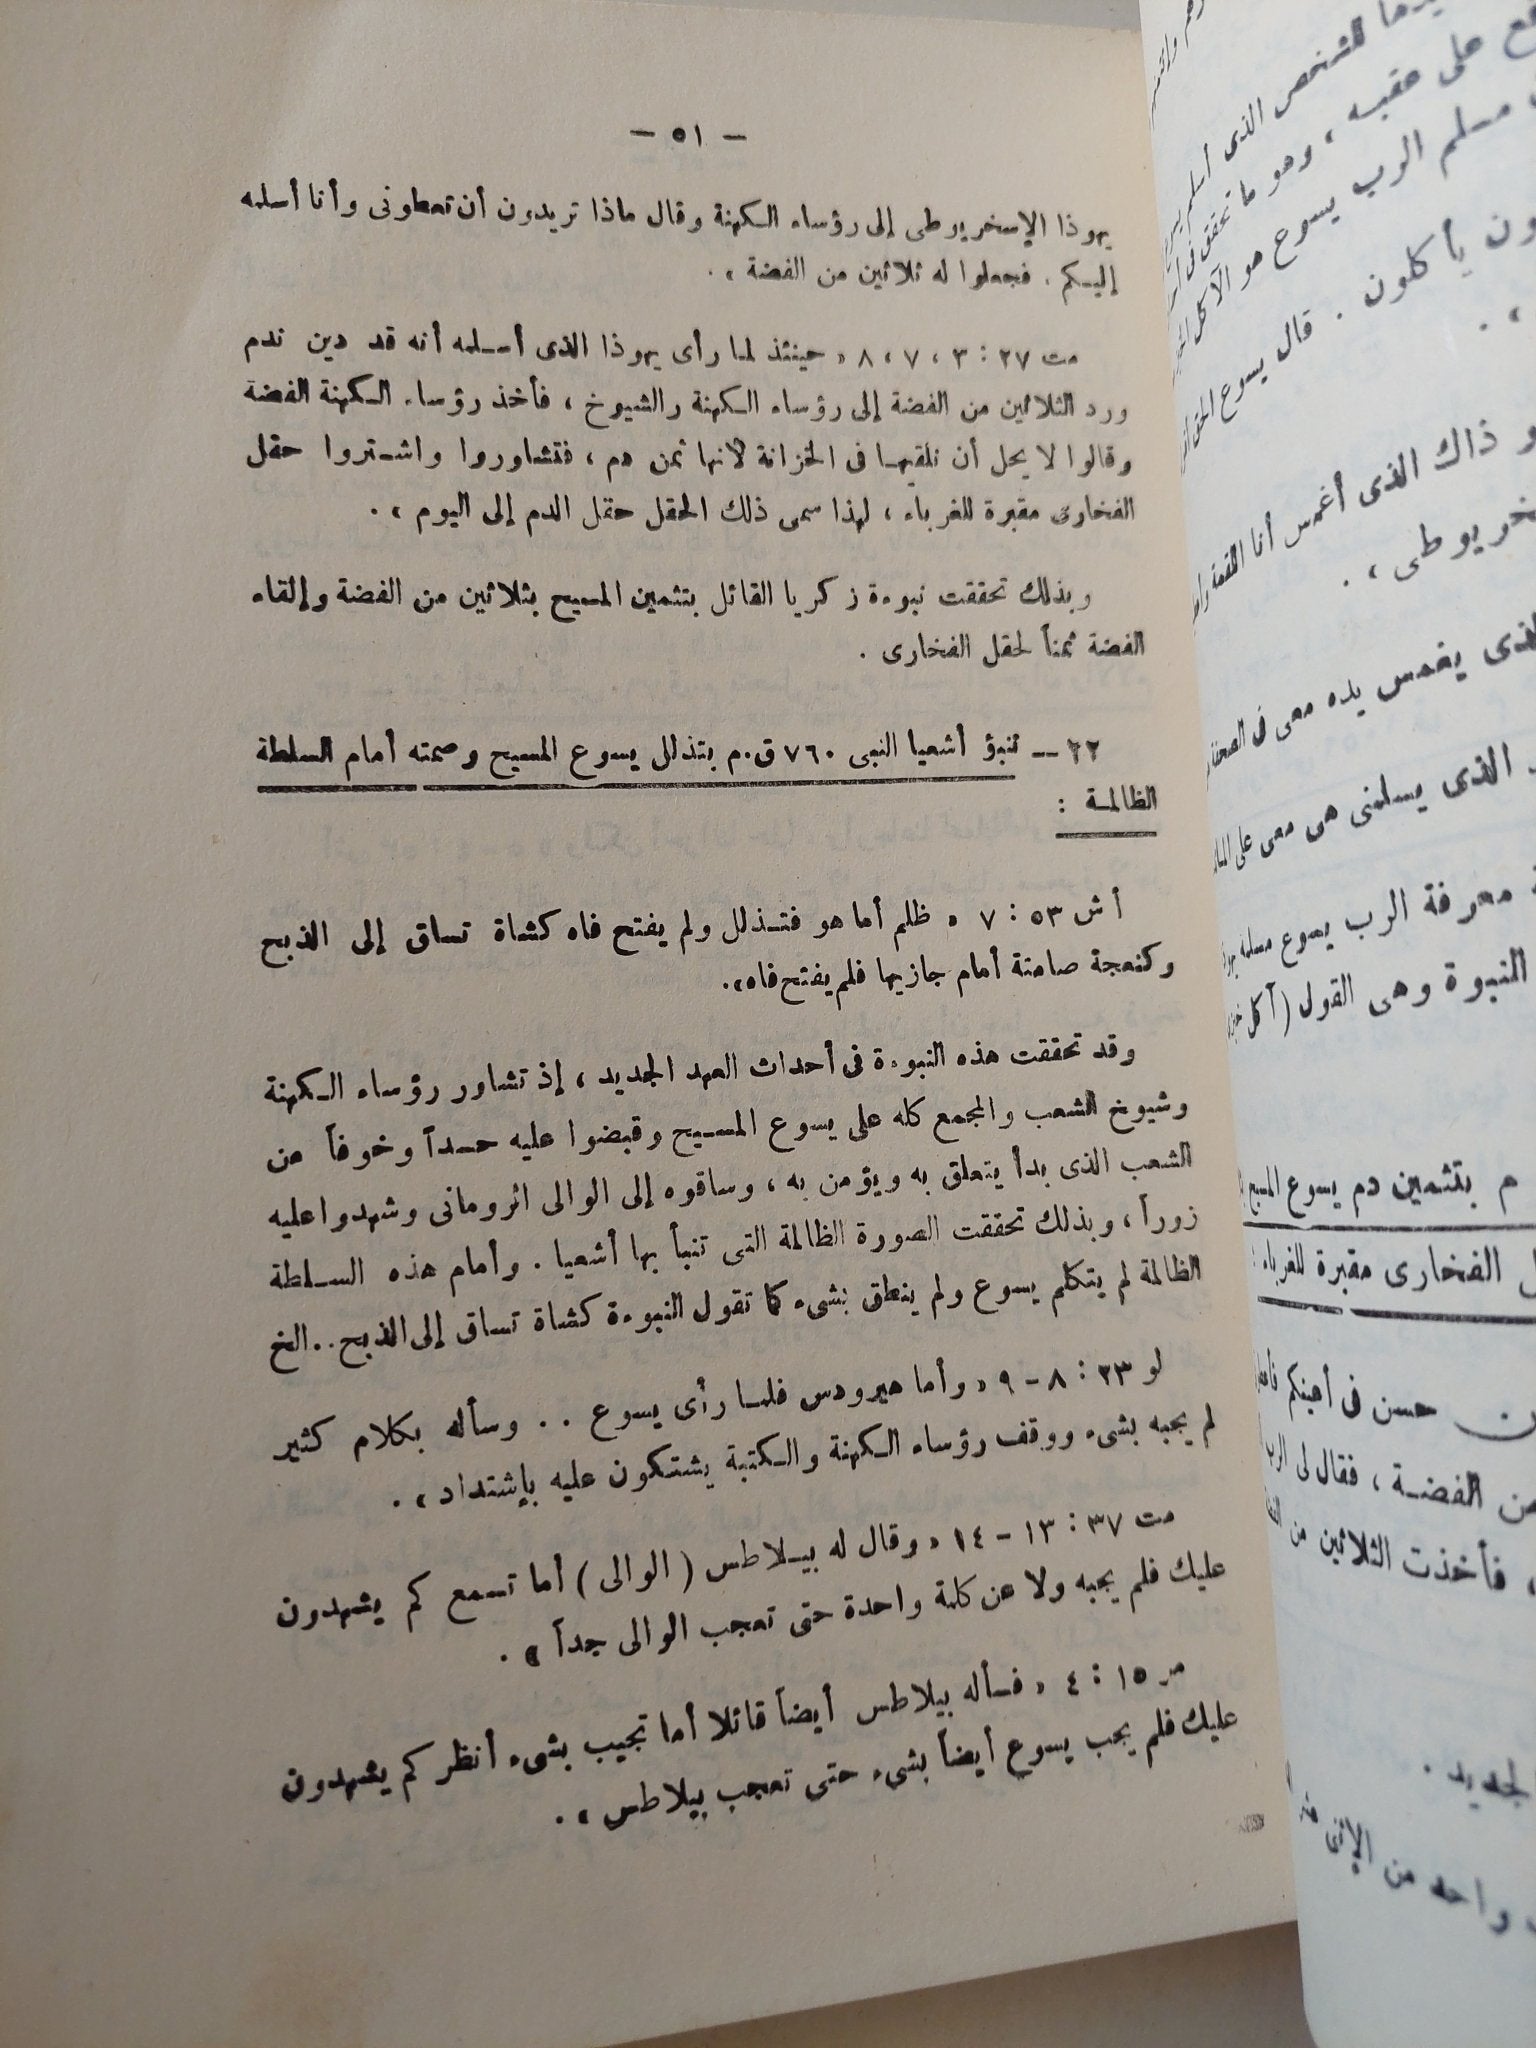 — ٥١ —
يهوذا الإسخريوطى إلى رؤساء الكهنة وقال ماذا تريدون أن تعطونى وأنا أسلمه
إليكم . فجعلوا له ثلاثين من الفضة » .
مت ٢٧ : ٣ ، ٧ ، ٨ « حينئذ لما رأى يهوذا الذى أسلمه أنه قد دين ندم
ورد الثلاثين من الفضة إلى رؤساء الكهنة والشيوخ ، فأخذ رؤساء الكهنة الفضة
وقالوا لا يحل أن نلقيها فى الخزانة لانها ثمن دم ، فتشاوروا واشتروا حقل
الفخارى مقبرة للغرباء ، لهذا سمى ذلك الحقل حقل الدم إلى اليوم » .
وبذلك تحققت نبوءة زكريا القائل بتثمين المسيح بثلاثين من الفضة وإلقاء
الفضة ثمناً لحقل الفخارى .
٢٢ — تنبؤ أشعيا النبى ٧٦٠ ق.م بتذلل يسوع المسيح وصمته أمام السلطة
الظالمة :
أش ٥٣ : ٧ « ظلم أما هو فتذلل ولم يفتح فاه كشاة تساق إلى الذبح
وكنعجة صامتة أمام جازيها فلم يفتح فاه» .
وقد تحققت هذه النبوءة فى أحداث العهد الجديد ، إذ تشاور رؤساء الكهنة
وشيوخ الشعب والمجمع كله على يسوع المسيح وقبضوا عليه حسداً وخوفاً من
الشعب الذى بدأ يتعلق به ويؤمن به ، وساقوه إلى الوالى الرومانى وشهدوا عليه
زوراً ، وبذلك تحققت الصورة الظالمة التى تنبأ بها أشعيا . وأمام هذه السلطة
الظالمة لم يتكلم يسوع ولم ينطق بشىء كما تقول النبوءة كشاة تساق إلى الذبح . . الخ
لو ٢٣ : ٨ – ٩ « وأما هيرودس فلما رأى يسوع . . وسأله بكلام كثير
لم يجبه بشىء ووقف رؤساء الكهنة والكتبة يشتكون عليه بإشتداد » .
مت ٣٧ : ١٣ – ١٤ « وقال له بيلاطس ( الوالى ) أما تسمع كم يشهدون
عليك فلم يجبه ولا عن كلمة واحدة حتى تعجب الوالى جداً » .
مر ١٥ : ٤ « فسأله بيلاطس أيضاً قائلا أما تجيب بشىء أنظر كم يشهدون
عليك فلم يجب يسوع أيضاً بشىء حتى تعجب بيلاطس » .
للشخص الذى أسلم
على عقبه ، وهو ما تحقق فى
مسلم الرب يسوع هو الآكل
يأكلون . قال يسوع الحق
ذاك الذى أغمس أنا اللقمة
يغمس يده معى فى الصحفة
الذى يسلمنى هى معى على
معرفة الرب يسوع مسلمه
النبوة وهى القول ( آكل
م بتثمين دم يسوع المسيح
الفخارى مقبرة للغرباء :
حسن فى أعينكم
من الفضة ، فقال لى الرب
، فأخذت الثلاثين من
واحد من الإثنى